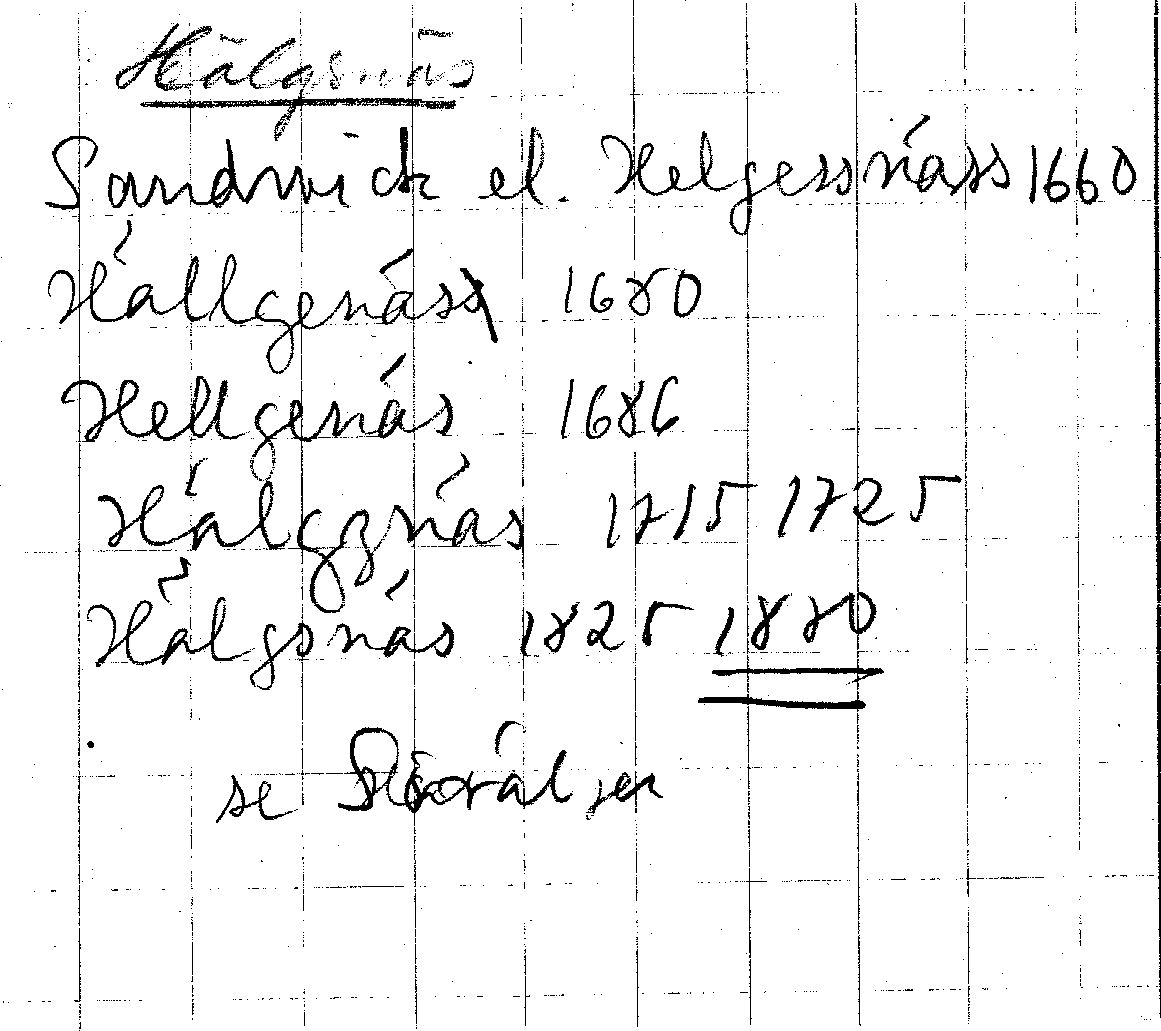 Hälgsnäs
Sandwick el. Helgessnäss 1660
Hällgenäs 1680
Hellgenäs 1686
Hälgznäs 1715 1725
Hälgsnäs 1825 1880
se